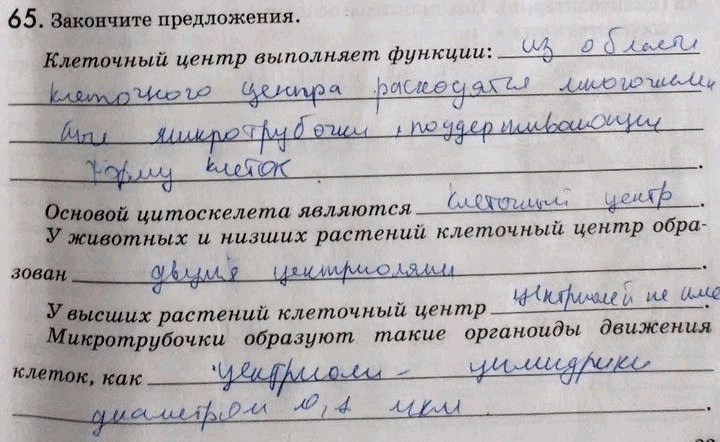 65. Закончите предложения.
Клеточный центр выполняет функции: из области
клеточного центра расходятся многочислен
ные микротрубочки, поддерживающие
форму клеток.
Основой цитоскелета являются клеточный центр.
У животных и низших растений клеточный центр обра-
зован двумя центриолями.
У высших растений клеточный центр центриолей не име
Микротрубочки образуют такие органоиды движения
клеток, как центриоли - цилиндрики
диаметром 0,1 мкм.